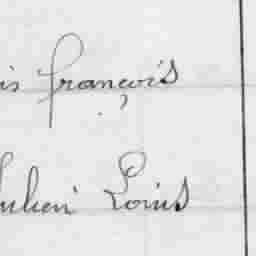 is françois
Julien Louis